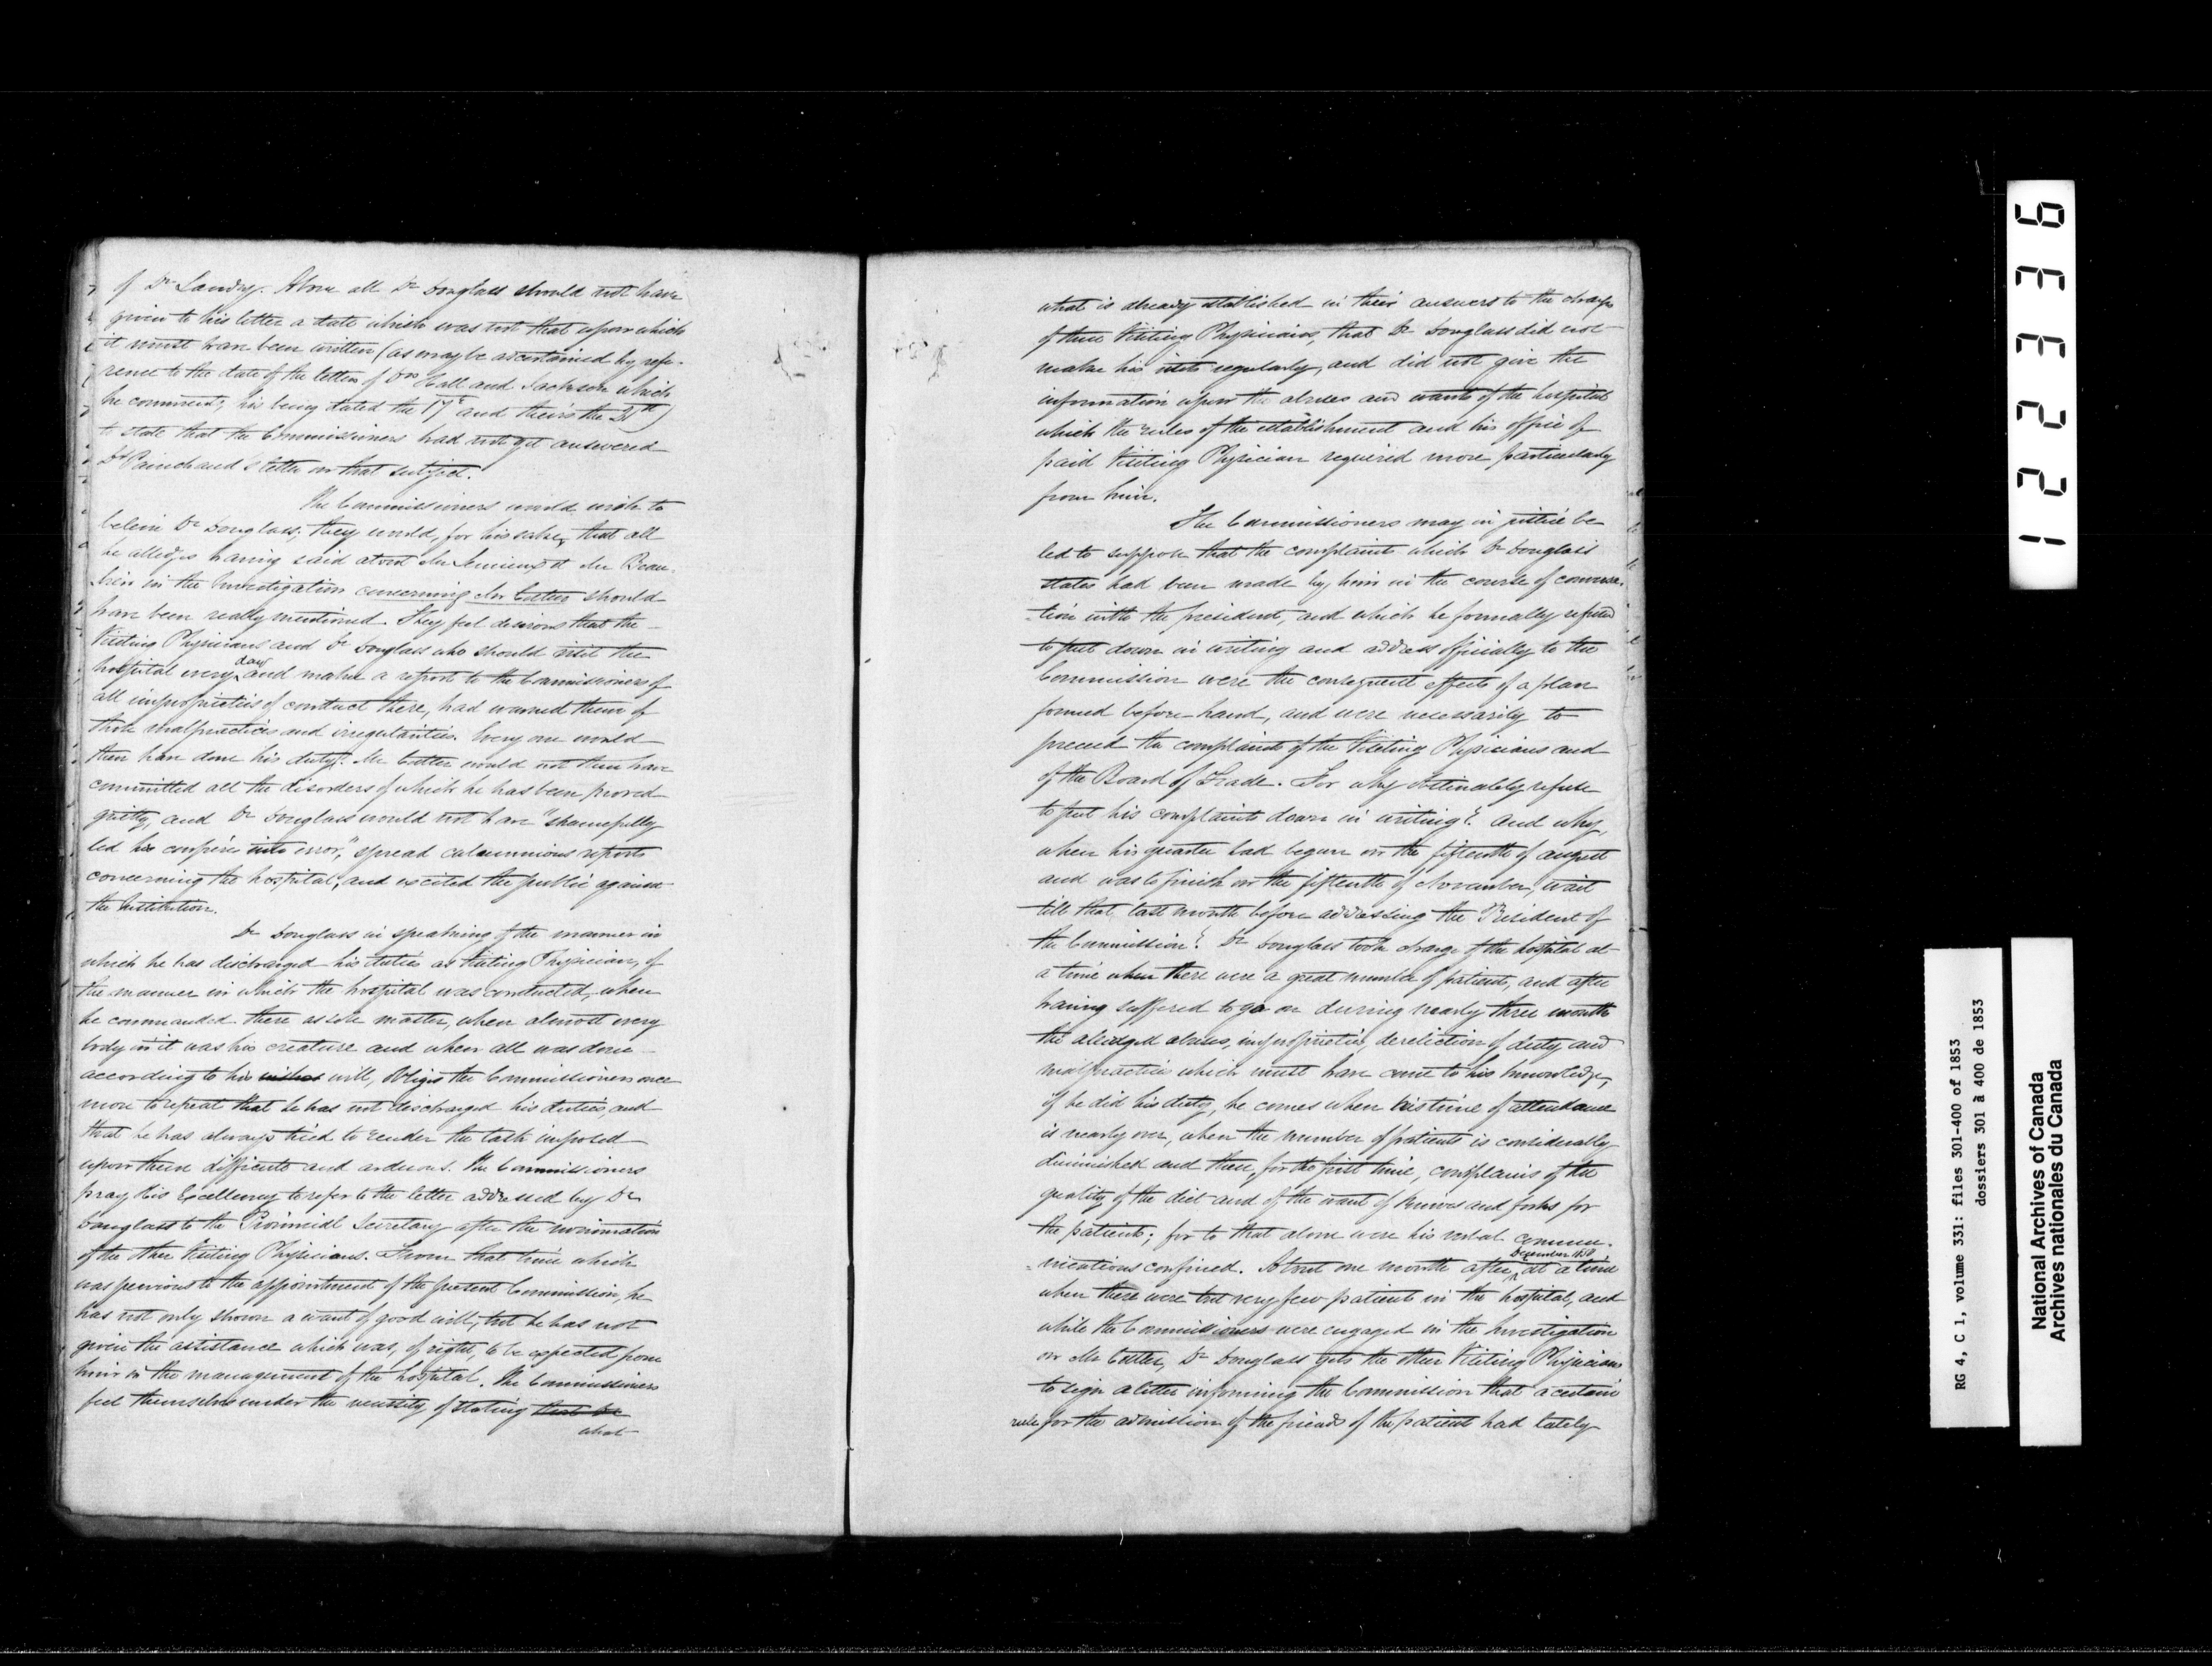 of Dr Landry. Above all Dr Douglass should not have
given to his letter a date which was not that upon which
it must have been written (as may be ascertained by refe-
rence to the date of the letters of Drs Hall and Jackson which
he comments, his being dated the 17th and theirs the 20th)
to state that the Commissioners had not yet answered
Dr Painchaud's letter on that subject.
The Commissioners would wish to
believe Dr Douglass; they would, for his sake, that all
he alledges having said about Mr Lemieux & Mr Beau-
bien in the Investigation concerning Mr Cutter should
have been really mentioned. They feel desirous that the
Visiting Physicians and Dr Douglass who should visit the
hospital every day and make a report to the Commissioners of
all improprieties of conduct there, had warned them of
those malpractices and irregularities. Every one would
then have done his duty. Mr Cutter would not then have
committed all the disorders of which he has been proved
guilty, and Dr Douglass would not have "shamefully
led his confrères into error," spread calumnious reports
concerning the hospital, and excited the public against
the Institution.
Dr Douglass in speaking of the manner in
which he has discharged his duties as Visiting Physician, of
the manner in which the hospital was conducted, when
he commanded there as sole master, when almost every
body in it was his creature and when all was done
according to his wishes will, obliges the Commissioners once
more to repeat that he has not discharged his duties and
that he has always tried to render the task imposed
upon them difficult and arduous. The Commissioners
pray His Excellency to refer to the letter addressed by Dr
Douglass to the Provincial Secretary after the nomination
of the other Visiting Physicians. From that time which
was previous to the appointment of the present Commission, he
has not only shown a want of good will, but he has not
given the assistance which was, of right, to be expected from
him in the management of the hospital. The Commissioners
feel themselves under the necessity of stating that he
what
what is already established in their answers to the charges
of three Visiting Physicians, that Dr Douglass did not
make his visits regularly, and did not give the
information upon the abuses and wants of the hospital
which the rules of the establishment and his office of
paid Visiting Physician required more particularly
from him.
The Commissioners may in justice be
led to suppose that the complaints which Dr Douglass
states had been made by him in the course of conversa-
-tion with the president, and which he formally refused
to put down in writing and address officially to the
Commission were the consequent effects of a plan
formed before-hand, and were necessarily to
preceed the complaints of the Visiting Physicians and
of the Board of Trade. For why obstinately refuse
to put his complaints down in writing? And why,
when his quarter had begun on the fifteenth of august
and was to finish on the fifteenth of November, wait
till that last month before addressing the President of
the Commission? Dr Douglass took charge of the hospital at
a time when there were a great number of patients, and after
having suffered to go on during nearly three months
the aledged abuses, improprieties, dereliction of duty and
malpractices which must have come to his knowledge,
if he did his duty, he comes when his time of attendance
is nearly over, when the number of patients is considerably
diminished and then, for the first time, complains of the
quality of the diet and of the want of knives and forks for
the patients; for to that alone were his verbal commu-
-nications confined. About one month after, December at a time
when there were but very few patients in the hospital, and
while the Commissioners were engaged in the Investigation
on Mr Cutter, Dr Douglass gets the other Visiting Physicians
to sign a letter informing the Commission that a certain
rule for the admission of the friends of the patients had lately
122336
RG 4, C 1, volume 331: files 301-400 of 1853
dossiers 301 à 400 de 1853
National Archives of Canada
Archives nationales du Canada